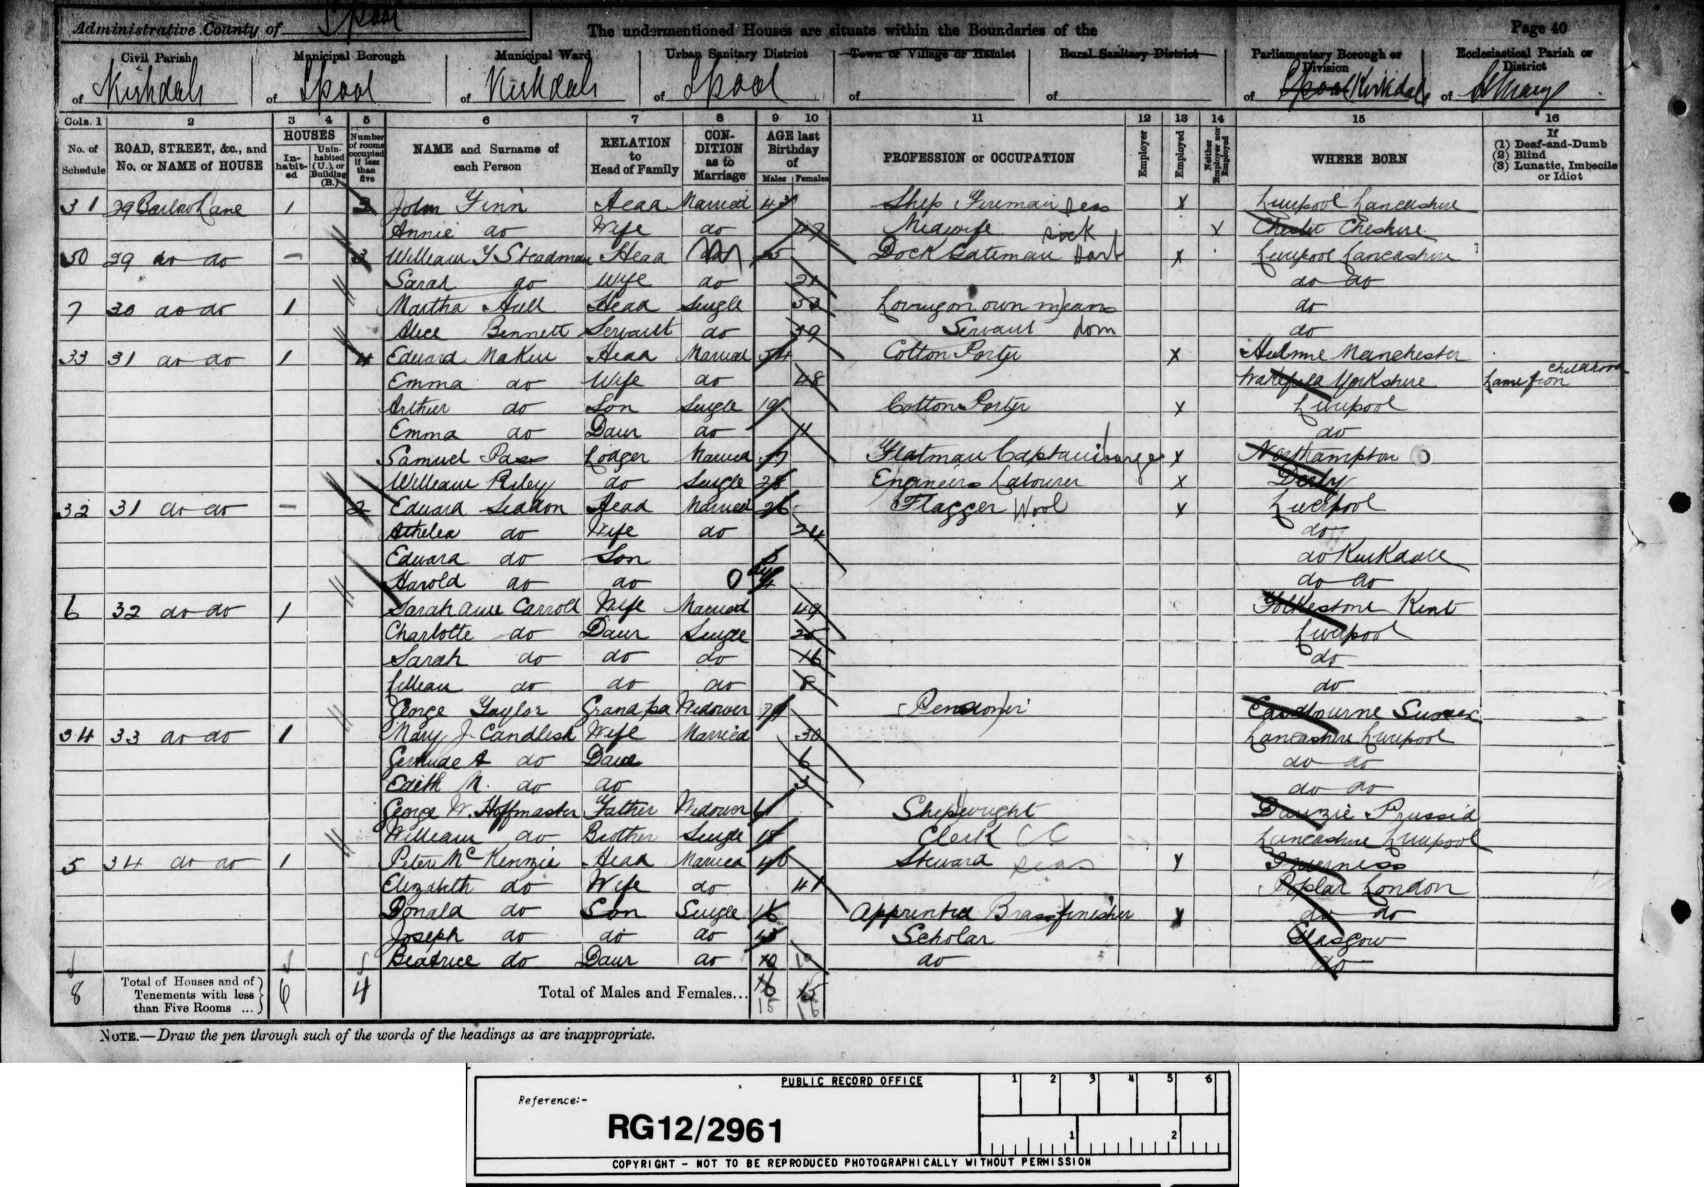 Administrative County of L'pool The undermentioned Houses are situate within the Boundaries of the Page 40
Civil Parish Municipal Borough Municipal Ward Urban Sanitary District Town or Village or Hamlet Rural Sanitary District Parliamentary Borough or Division Ecclesiastical Parish or District
of Kirkdale of L'pool of Kirkdale of L'pool of of of L'pool Kirkdale of St Marys
Cols. 1 2 3 4 5 6 7 8 9 10 11 12 13 14 15 16
No. of Schedule ROAD, STREET, &c., and No. or NAME of HOUSE HOUSES Inhabited Uninhabited (U.), or Building (B.) Number of rooms occupied if less than five NAME and Surname of each Person RELATION to Head of Family CONDITION as to Marriage AGE last Birthday of Males Females PROFESSION or OCCUPATION Employer Employed Neither Employer nor Employed WHERE BORN If (1) Deaf-and-Dumb (2) Blind (3) Lunatic, Imbecile or Idiot
31 29 Lane 1 3 John Finn Head Married Ship Fireman seas X Liverpool Lancashire
Annie do Wife do Midwife sick X Chester Cheshire
50 29 do do – 3 William Y Steadman Head M Dock Gateman X Liverpool Lancashire
Sarah do Wife do 21 do do
7 30 do do 1 Martha Hull Head Single 53 Living on own means do
Alice Bennett Servant do 19 Servant dom do
33 31 do do 1 4 Edward Makin Head Married 54 Cotton Porter X Hulme Manchester
Emma do Wife do 48 Wakefield Yorkshire Lame from childhood
Arthur do Son Single 19 Cotton Porter X Liverpool
Emma do Daur do 11 do
Samuel Pass Lodger Married 37 Flatman Captain barge X Northampton
William Riley do Single 28 Engineers Labourer X Derby
32 31 do do – 2 Edward Seddon Head Married 26 Flagger Wool X Liverpool
Athelea do Wife do 24 do
Edward do Son do Kirkdale
Harold do do do do
6 32 do do 1 Sarah Ann Carroll Wife Married 49 Folkestone Kent
Charlotte do Daur Single Liverpool
Sarah do do do 16 do
Lillian do do do 8 do
George Taylor Grandpa Widower Pensioner Eastbourne Sussex
34 33 do do 1 Mary J Candlish Wife Married 30 Lancashire Liverpool
Gertrude A do Daur 6 do do
Edith M. do do 3 do do
George W. Hoffmaster Father Widower 61 Shipwright Danzic Prussia
William do Brother Single 18 Clerk CC Lancashire Liverpool
5 34 do do 1 Peter McKenzie Head Married 46 Steward seas X Inverness
Elizabeth do Wife do 41 Poplar London
Donald do Son Single 16 Apprentice Brassfinisher X do do
Joseph do do do 13 Scholar Glasgow
Beatrice do Daur do 10 10 do do
8 Total of Houses and of Tenements with less than Five Rooms ... 6 4 Total of Males and Females... 16 15
15 16
NOTE.—Draw the pen through such of the words of the headings as are inappropriate.
PUBLIC RECORD OFFICE 1 2 3 4 5 6
Reference:-
RG12/2961 1 2
COPYRIGHT - NOT TO BE REPRODUCED PHOTOGRAPHICALLY WITHOUT PERMISSION